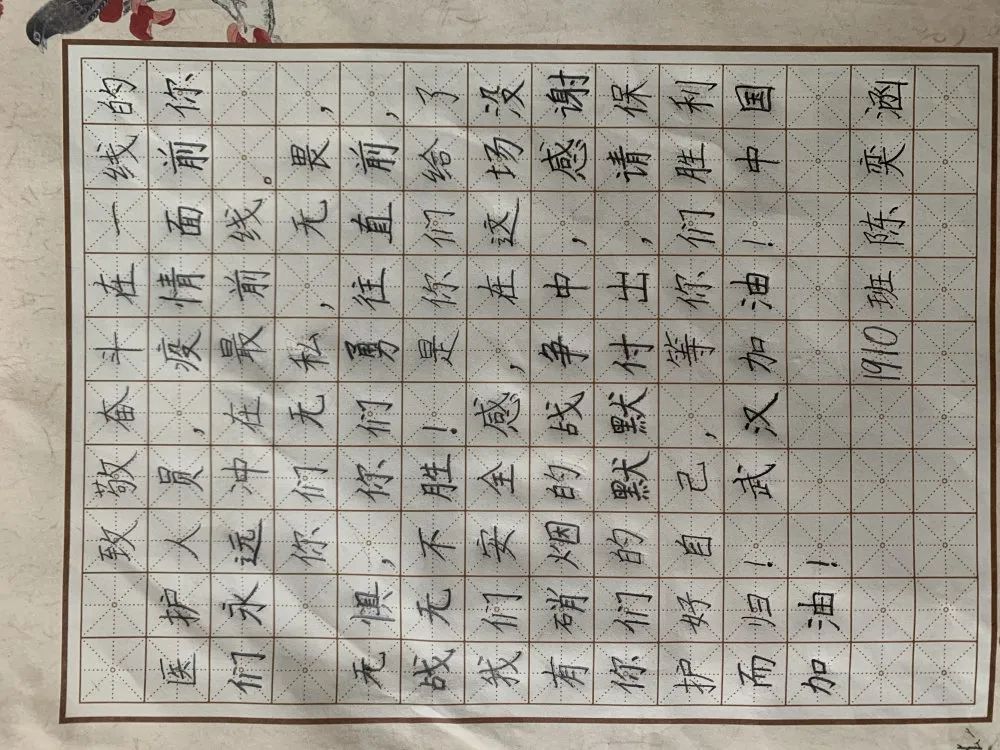 致敬奋斗在一线的
医护人员，疫情面前你
们永远冲在最前线。
你们无私，无畏，
无惧，你们勇往直前，
战无不胜！是你们给了
我们安全感，在这场没
有硝烟的战争中，感谢
你们的默默付出，请保
护好自己，等你们胜利
而归！武汉加油！中国
加油！
1910班陈奕涵